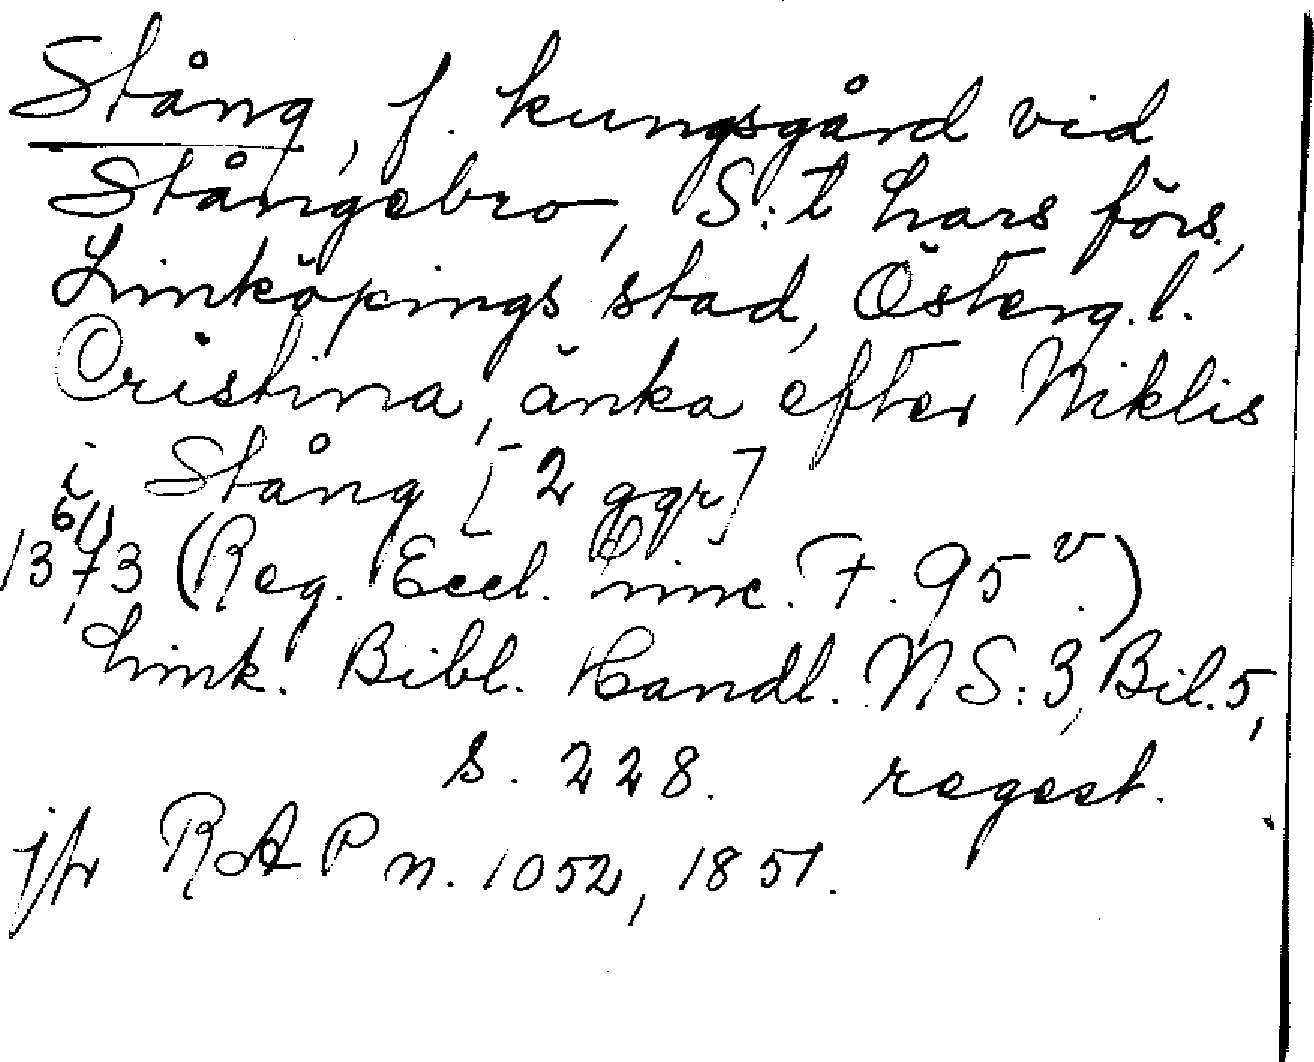 Stång, f. kungsgård vid
Stångebro, S:t Lars förs.,
Linköpings stad, Österg.l.
Cristina, änka efter Niklis
i Stång [2 ggr]
6/1
1373 (Reg. Eccl. Linc. F. 95 v.)
Link. Bibl. Handl. NS:3, Bil.5,
s. 228. regest.
jfr RAP n. 1052, 1851.